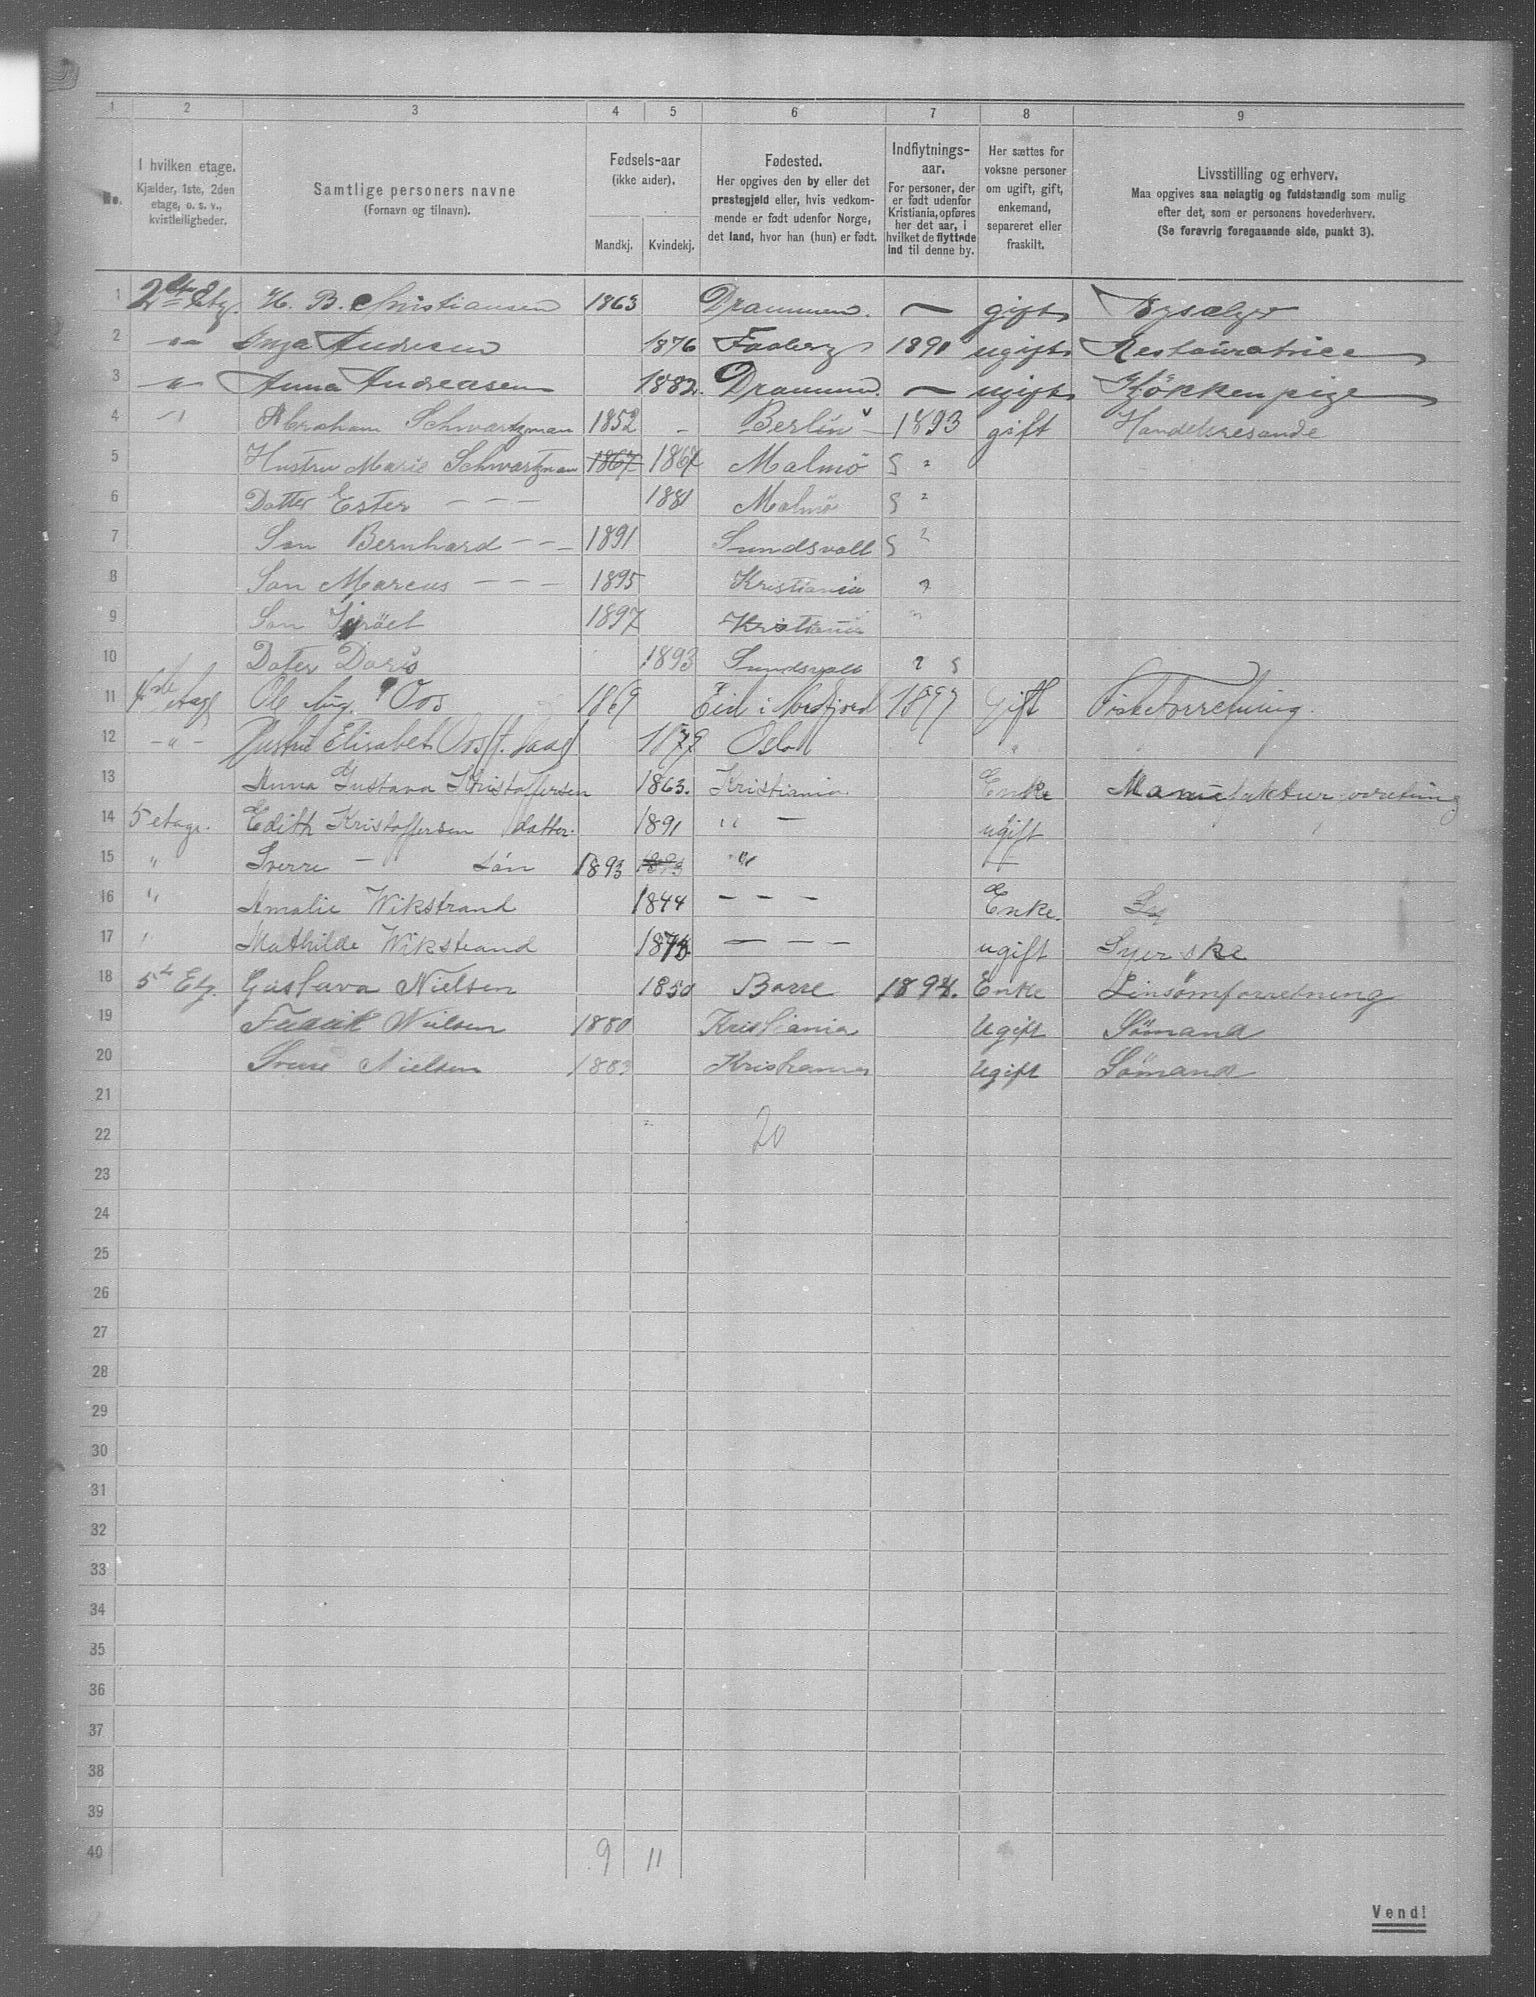 1 2 3 4 5 6 7 8 9
No.
I hvilken etage.
Kjælder, 1ste, 2den
etage, o. s. v.,
kvistleiligheder.
Samtlige personers navne
(Fornavn og tilnavn).
Fødsels-aar
(ikke aider).
Mandkj. Kvindekj.
Fødested.
Her opgives den by eller det
prestegjeld eller, hvis vedkom-
mende er født udenfor Norge,
det land, hvor han (hun) er født.
Indflytnings-
aar.
For personer, der
er født udenfor
Kristiania, opføres
her det aar, i
hvilket de flyttede
ind til denne by.
Her sættes for
voksne personer
om ugift, gift,
enkemand,
separeret eller
fraskilt.
Livsstilling og erhverv.
Maa opgives saa nøiagtig og fuldstændig som mulig
efter det, som er personens hovederhverv.
(Se forøvrig foregaaende side, punkt 3).
1 2den Etg. H. B. Christiansen 1863 Drammen. — gift Ølsælger
2 —"— Inga Andresen 1876 Faaberg 1891 ugift Restauratrice
3 —"— Anna Andreasen 1882. Drammen. — ugift Kjøkkenpige
4 —"— Abraham Schwartzman 1852 - Berlin 1893 gift Handelsresande
5 Hustru Marie Schwartzman 1867 1867 Malmö S "
6 Datter Ester — — — 1881 Malmö S "
7 Son Bernhard — — — 1891 Sundsvall S "
8 Son Marcus — — — 1895 Kristiania "
9 Son 1897 Kristiania "
10 Dater Doris 1893 Sundsvall " S
11 4de etage Ole Aug. Oos 1869 Eid i Nordfjord 1897 Gift Fisketorretning.
12 —"— Hustru Elisabet Oos f. 1879 Oslo "
13 Anna Gustava Kristoffersen 1863. Kristiania Enke Manufakturforretning
14 5 etage. Edith Kristoffersen datter. 1891 " — ugift
15 " Sverre — søn 1893 1893 "
16 " Amalie Wikstrand 1844 — — — Enke. Sy
17 " Mathilde Wikstrand 1878 — — — ugift Syerske
18 5te Etg. Gustava Nielsen 1850 Borre 1894. Enke Linsømforretning
19 Fredrik Nielsen 1880 Kristiania Ugift Sömand
20 Sverre Nielsen 1883 Kristiania Ugift Sömand
21
22 20
23
24
25
26
27
28
29
30
31
32
33
34
35
36
37
38
39
40 9 11
Vend!